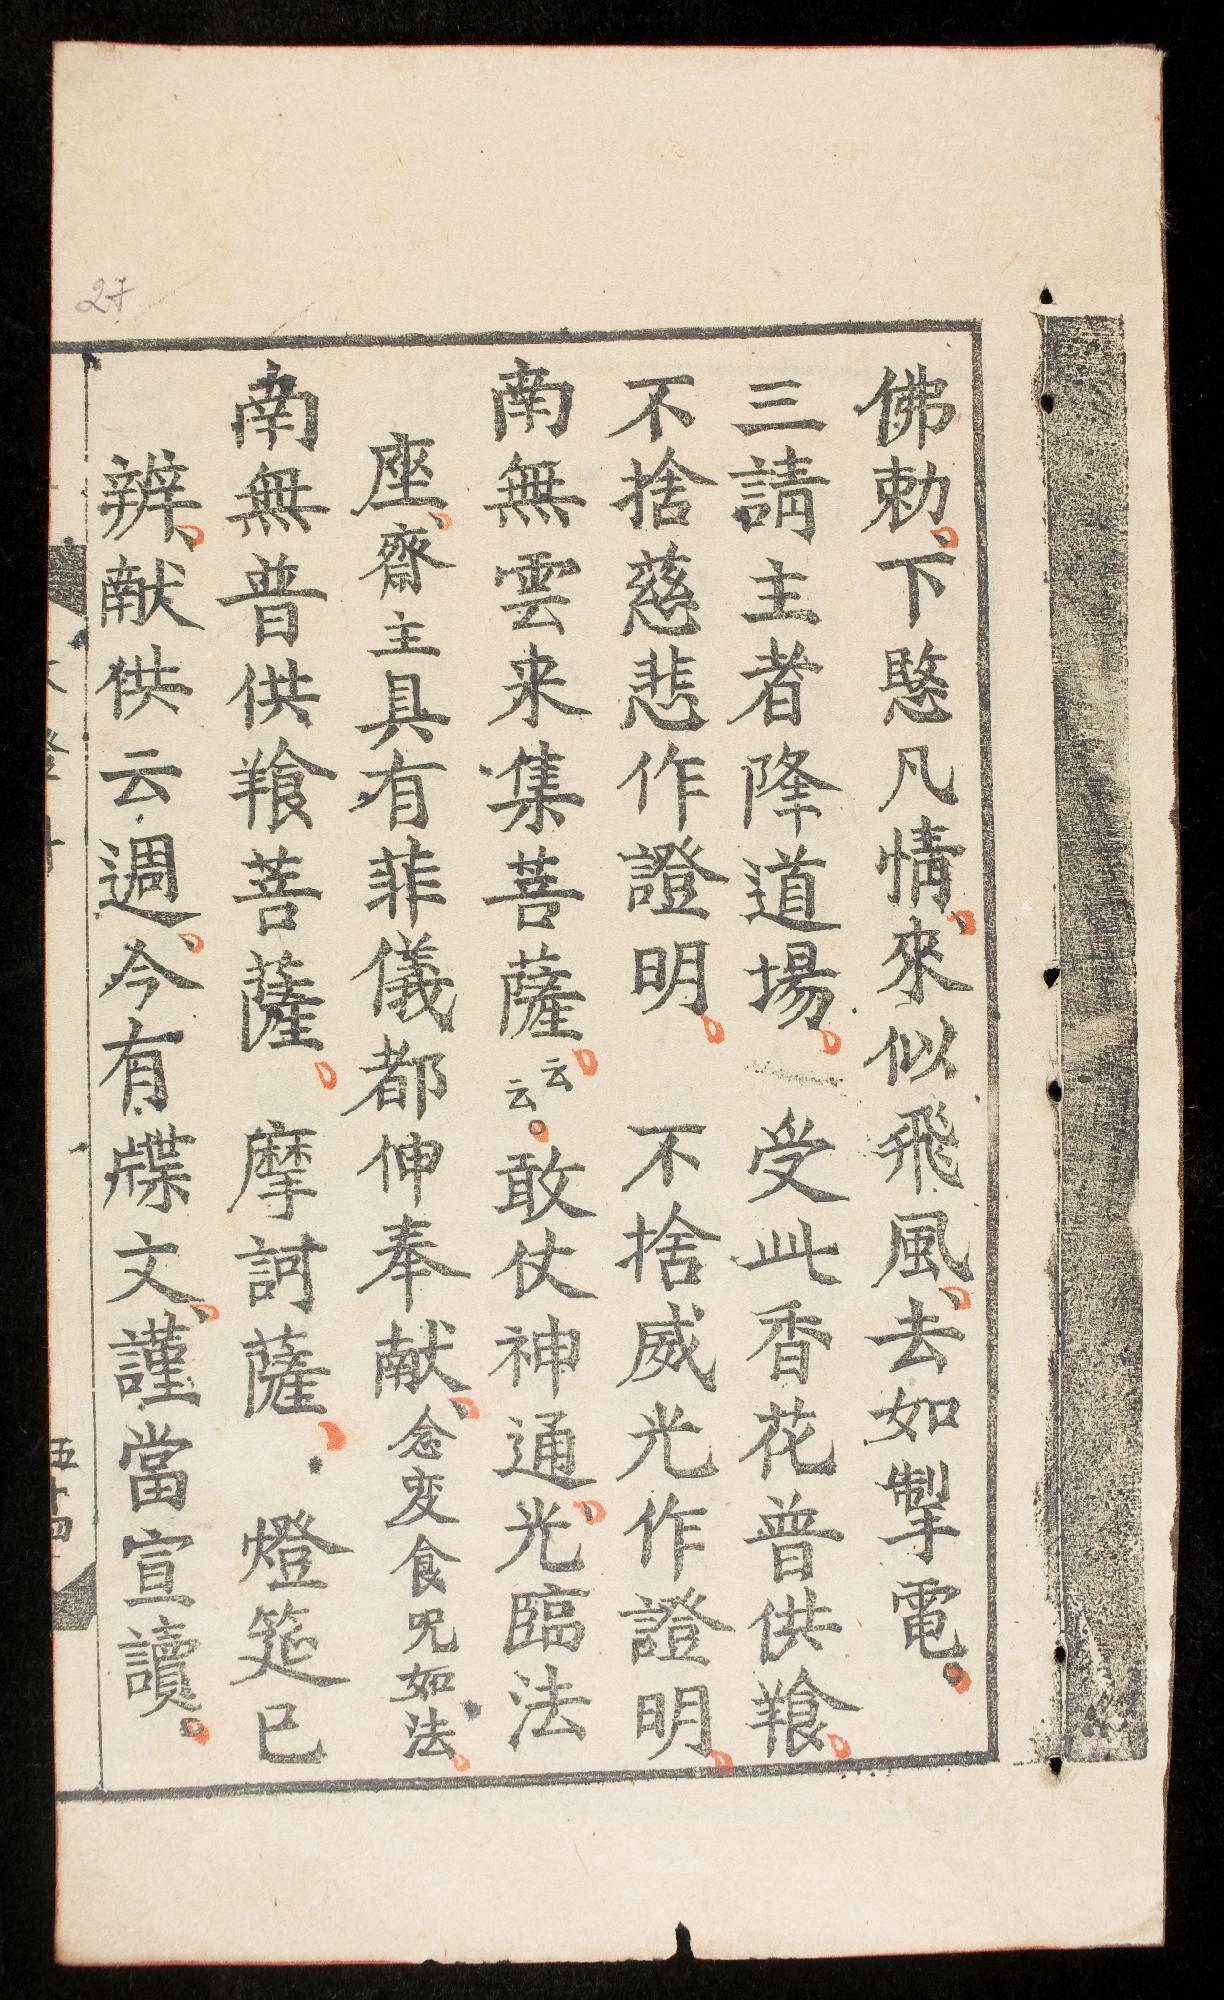 佛勅、下愍凡情、來似飛風、去如掣電。
三請主者降道場。受此香花普供飱
不捨慈悲作證明。不捨威光作證明
南無雲来集菩薩云云。敢仗神通、光臨法
座、齋主具有菲儀都伸奉献、念变食呪如法
南無普供飱菩薩。摩訶薩、燈筵已
辨、献供云週、今有牒文、謹當宣讀。
五十四
27